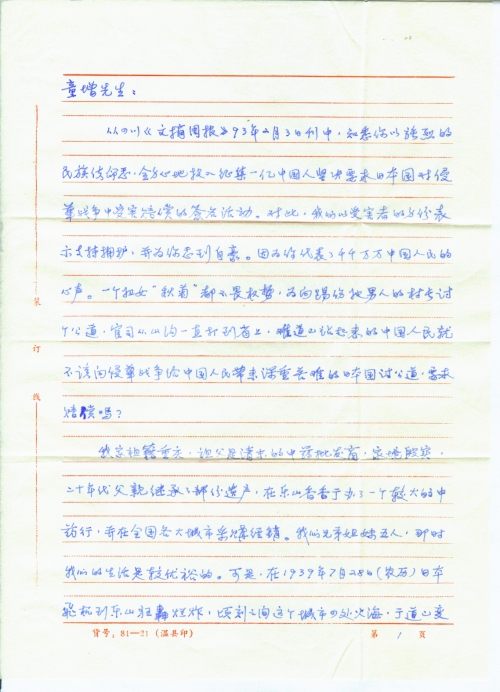 童增先生：
从四川《文摘周报》93年2月3日刊中，知悉你以强烈的
民族使命感，全身心地投入征集一亿中国人坚决要求日本国对侵
华战争中受害赔偿的签名活动。对此，我们以受害者的身份表
示支持拥护，并为你感到自豪。因为你代表了千千万万中国人民的
心声。一个妇女“秋菊”都不畏权势，为向踢伤她男人的村长讨
个公道，官司从山沟一直打到省上，难道已站起来的中国人民就
不该向侵华战争给中国人民带来深重苦难的日本国讨公道，要求
赔偿吗？
我家祖籍重庆，祖父是清末的中药批发商，家境殷实，
二十年代父亲继承了部份遗产，在乐山县办了一个较大的中
药行，并在全国各大城市采购经销。我们兄弟姐妹五人，那时
我们的生活是较优裕的。可是，在1939年7月28日(农历)日本
飞机到乐山狂轰烂炸，顷刻之间这个城市四处火海，于道已变
装
订
线
货号：81—21（温县印）
第 1 页